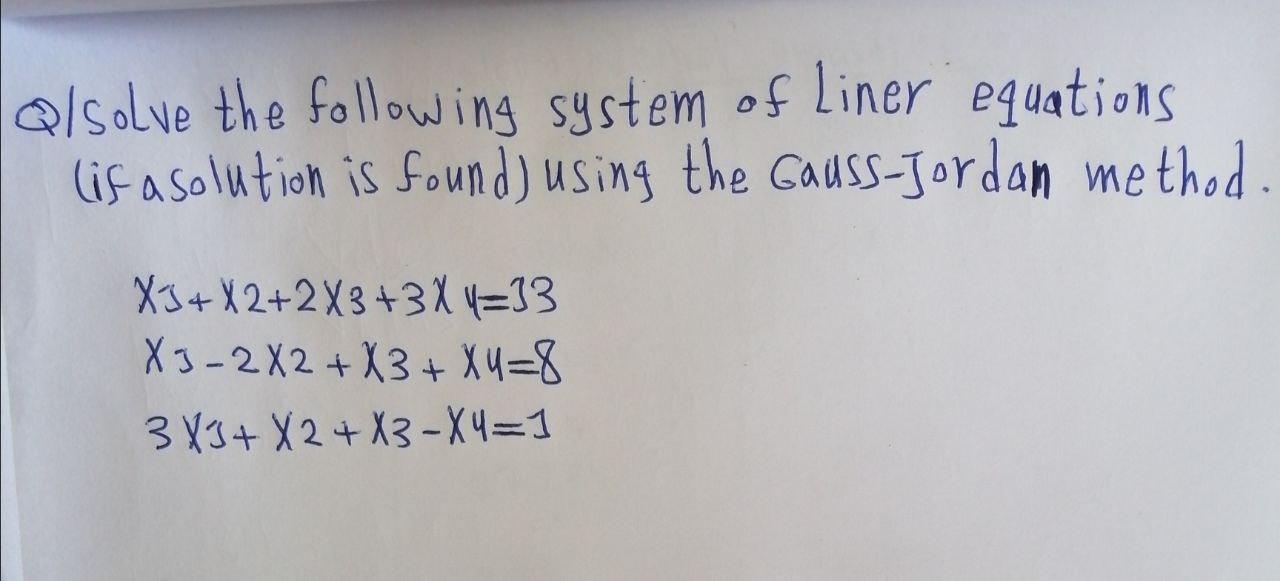 Q/Solve the following system of Liner equations
(if a solution is found) using the Gauss-Jordan method.
X1+X2+2X3+3X4=13
X1-2X2+X3+X4=8
3X1+X2+X3-X4=1